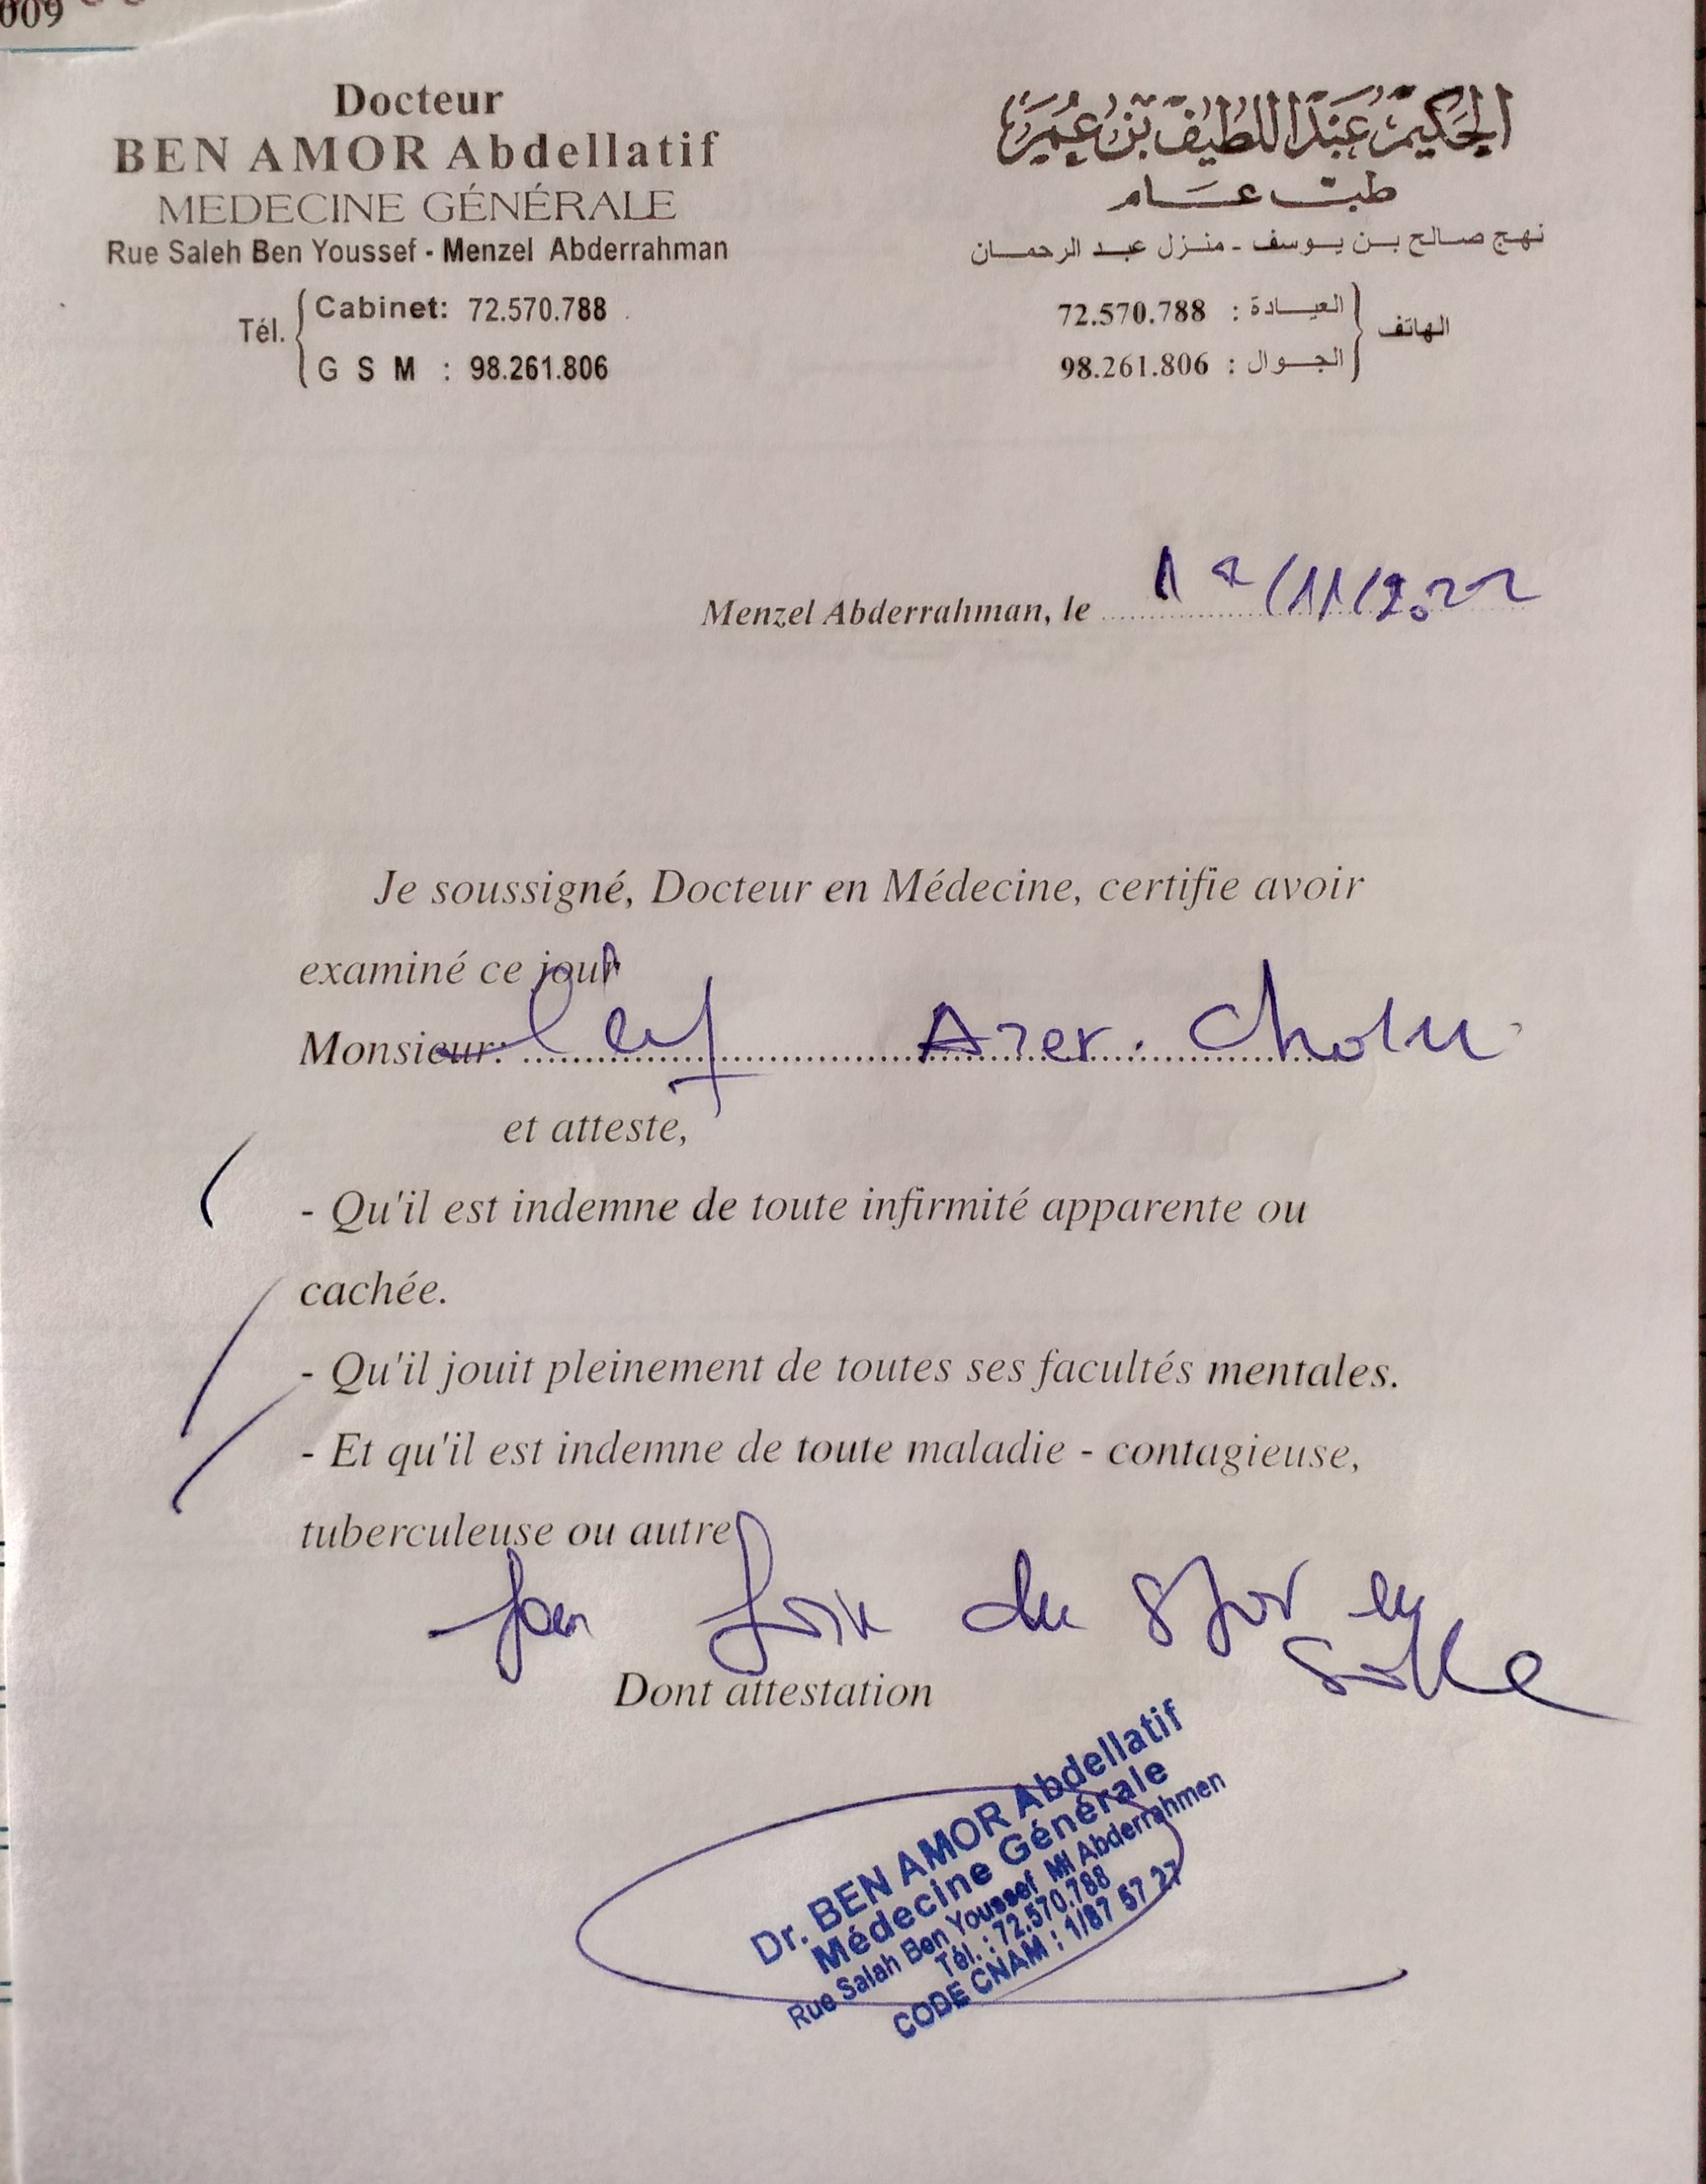 009
Docteur
BEN AMOR Abdellatif
MEDECINE GÉNÉRALE
Rue Saleh Ben Youssef - Menzel Abderrahman
Tél.
Cabinet: 72.570.788
G S M : 98.261.806
الحكيم عبد اللطيف بن عمر
طب عام
نهج صالح بن يوسف - منزل عبد الرحمان
الهاتف
العيادة : 72.570.788
الجوال : 98.261.806
Menzel Abderrahman, le /11/2022
Je soussigné, Docteur en Médecine, certifie avoir
examiné ce jour
Monsieur: Azer
et atteste,
- Qu'il est indemne de toute infirmité apparente ou
cachée.
- Qu'il jouit pleinement de toutes ses facultés mentales.
- Et qu'il est indemne de toute maladie - contagieuse,
tuberculeuse ou autre
du en
salle
Dont attestation
Dr. BEN AMOR Abdellatif
Médecine Générale
Rue Salah Ben Youssef Ml Abderrahmen
Tél. : 72.570.788
CODE CNAM : 1/87 57 27